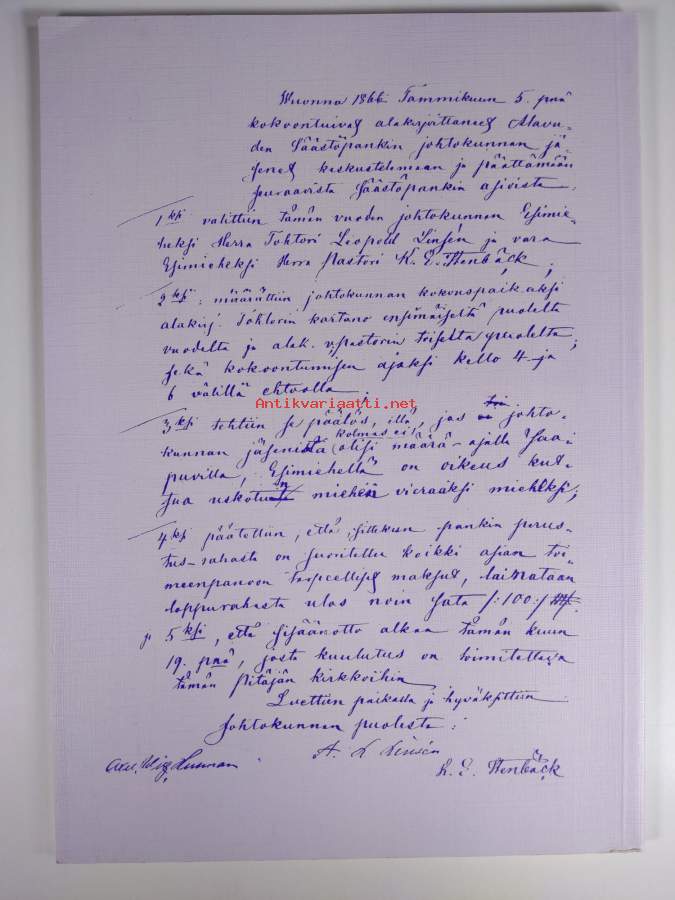 Wuonna 1866 Tammikuun 5. pnä
kokoontuivat alakirjoittaneet Alavu-
den Säästöpankin johtokunnan jä-
senet keskustelemaan ja päättämään
seuraavista Säästöpankin asioista.
1ksi valittiin tämän vuoden johtokunnan Esimie-
heksi Herra Tohtori Leopold Linsén ja vara
Esimieheksi Herra Pastori K. E. Stenbäck;
2ksi: määrättiin johtokunnan kokouspaikaksi
alakirj. Tohtorin kartano ensimäiseltä puolelta
vuodelta ja alak. v. pastorin toiselta puolelta,
sekä kokoontumisen ajaksi kello 4 ja
6 välillä ehtoolla;
Antikvariaatti.net
3ksi tehtiin se päätös, että, jos ei johto-
kolmas ei
kunnan jäsenistä olisi määrä-ajalla saa-
puvilla, Esimiehellä on oikeus kut-
sua uskotun miehen vieraaksi mieheksi;
4ksi päätettiin, että, sittekun pankin perus-
tus-rahasta on suoritettu kaikki asian toi-
meenpanoon tarpeelliset maksut, lainataan
loppurahasta ulos noin sata /:100:/
5ksi, että sisäänotto alkaa tämän kuun
19. pnä, josta kuulutus on toimitettava
tämän Pitäjän kirkkoihin
Luettiin paikalla ja hyväksyttiin
Johtokunnan puolesta:
A L Linsén
K. E. Stenbäck